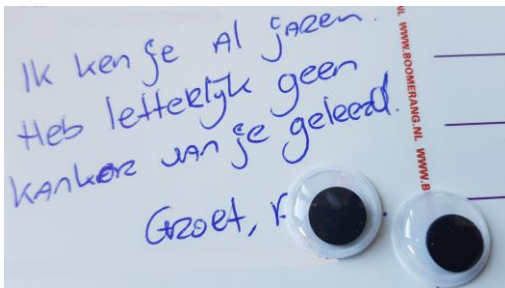 Ik ken je al jaren.
Heb letterlijk geen
kanker van je geleerd.
Groet,
NL WWW.BOOMERANG.NL WWW.B